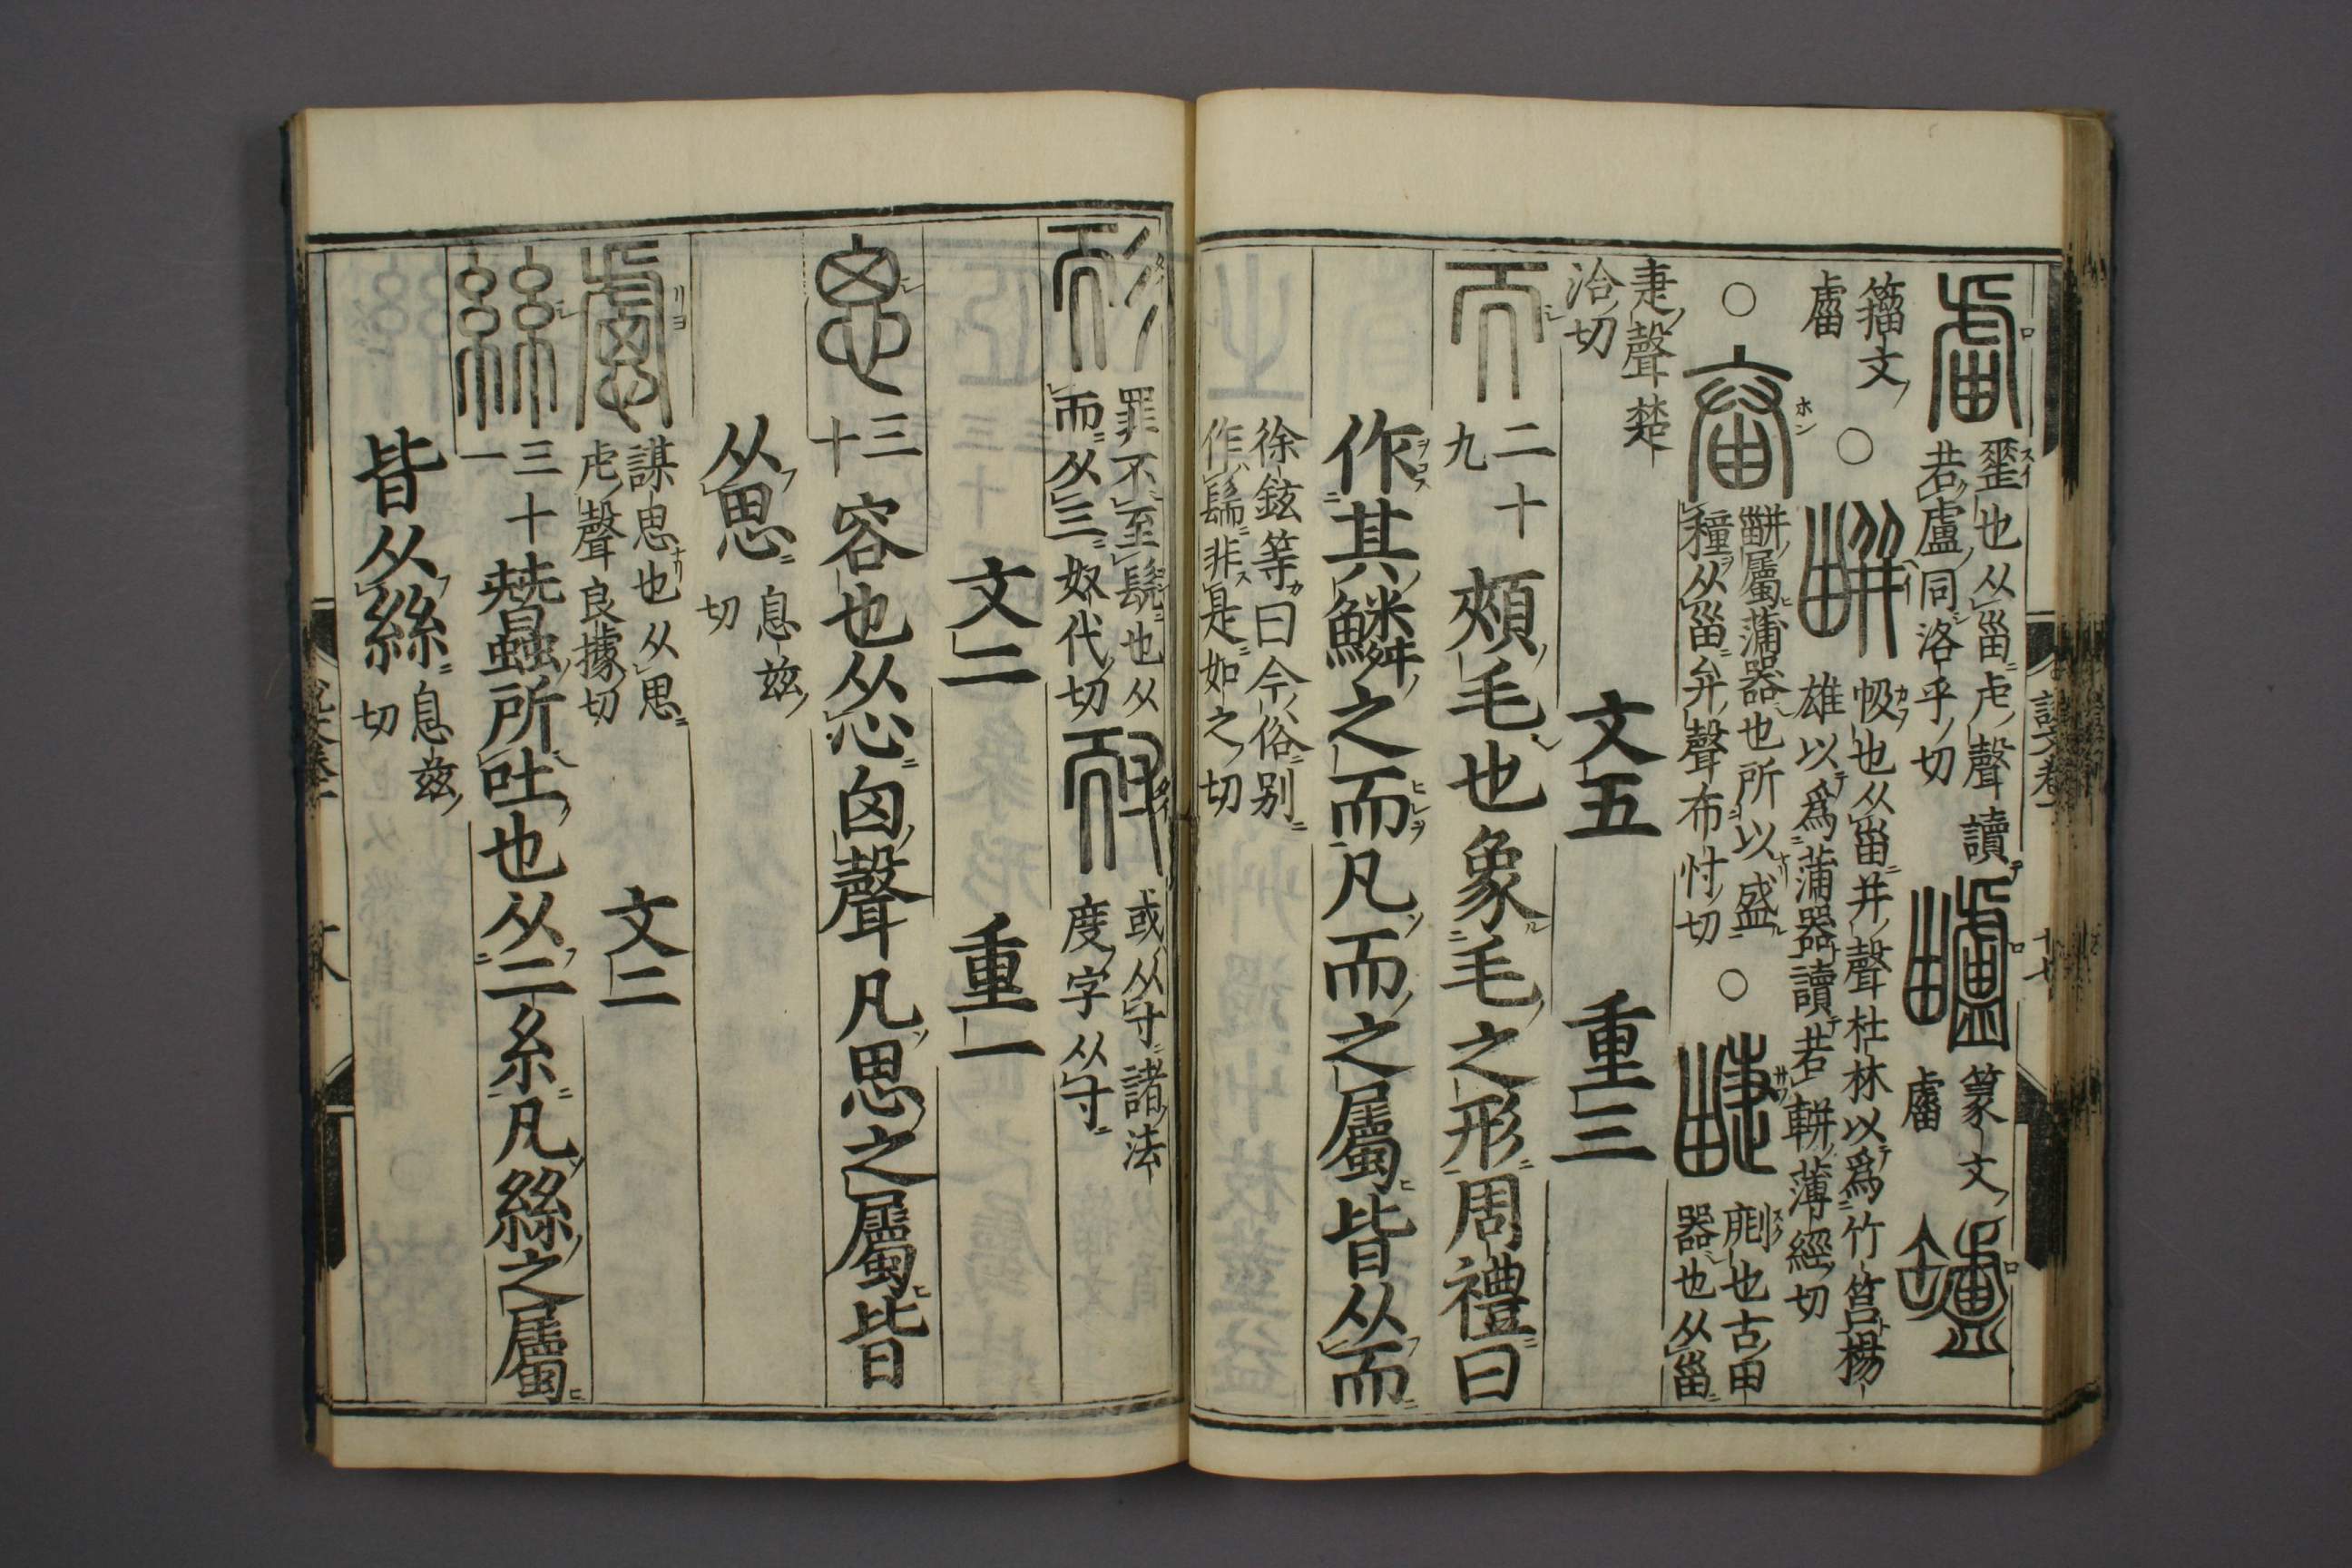 𤮺也从甾虍聲讀
若盧同洛乎切
篆文
𧆨
籒文
𧆨
○
㡇也从甾并聲杜林以爲竹筥楊
雄以爲蒲器讀若軿薄經切
○
䍈屬蒲器也所以盛
種从甾弁聲布忖切
○
𠞊也古田
器也从甾
疌聲楚
洽切
文五 重三
而 二十九 頰毛也象毛之形周禮曰
作其鱗之而凡而之屬皆从而
徐鉉等曰今俗别
作髵非是如之切
耏 罪不至髡也从
而从彡奴代切
耐 或从寸諸法
度字从寸
文二 重一
思 三十 容也从心囟聲凡思之屬皆
从思 息兹切
慮 謀思也从思
虍聲良據切
文二
絲 三十一 蠶所吐也从二糸凡絲之屬
皆从絲 息兹切